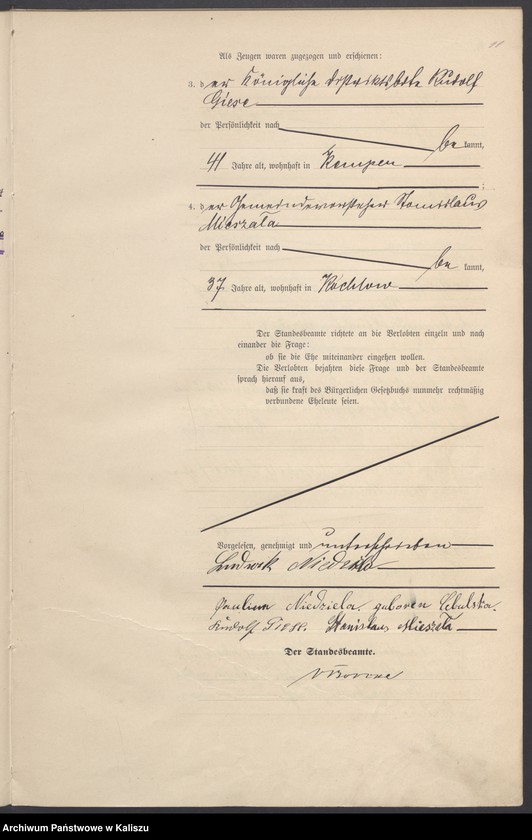 11
Als Zeugen waren zugezogen und erschienen:
3. der Königliche Distriktsbote Rudolf
Giese
der Persönlichkeit nach
be kannt,
41 Jahre alt, wohnhaft in Kempen
;
4. der Gemeindevorsteher Stanislaus
Mieszala
der Persönlichkeit nach
be kannt,
37 Jahre alt, wohnhaft in Kochlow
Der Standesbeamte richtete an die Verlobten einzeln und nach
einander die Frage:
ob sie die Ehe miteinander eingehen wollen.
Die Verlobten bejahten diese Frage und der Standesbeamte
sprach hierauf aus,
daß sie kraft des Bürgerlichen Gesetzbuchs nunmehr rechtmäßig
verbundene Eheleute seien.
Vorgelesen, genehmigt und unterschrieben
Ludwik Niedziela
Paulina Niedziela geboren Cebulska.
Rudolf Giese. Stanislaus Mieszala
Der Standesbeamte.
Archiwum Państwowe w Kaliszu